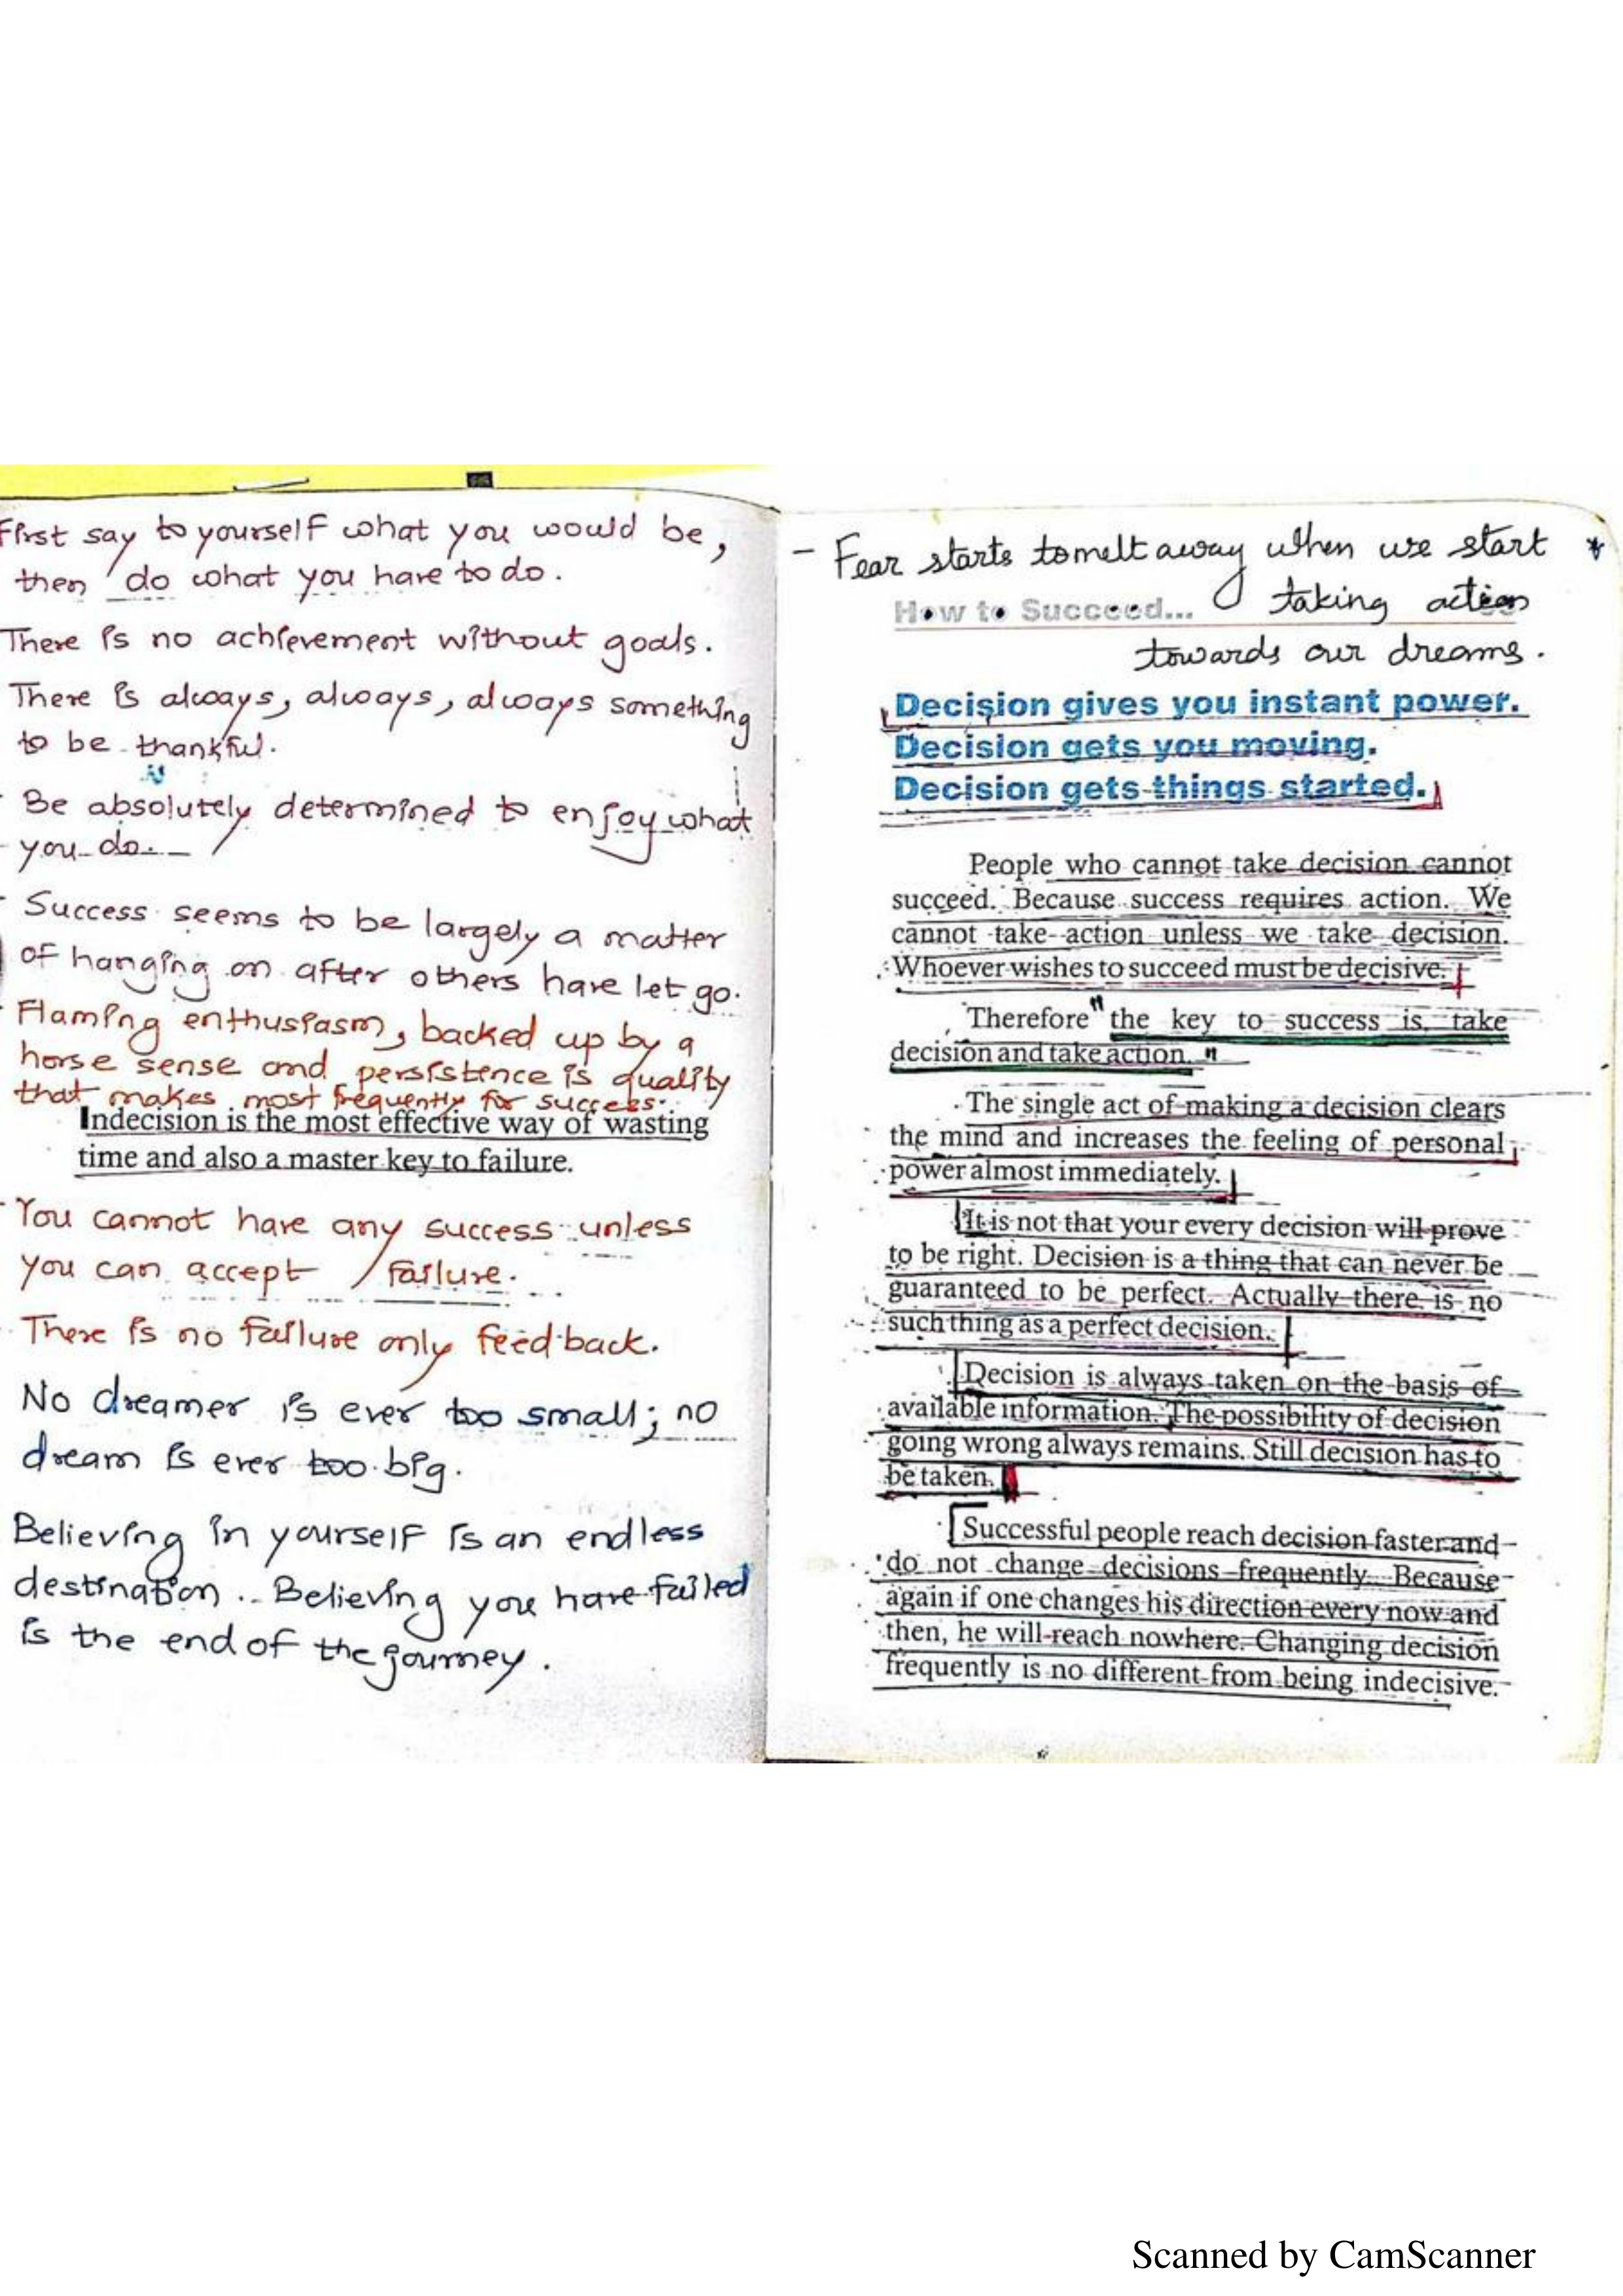 First say to yourself what you would be,
then do what you have to do.
There is no achievement without goals.
There is always, always, always something
to be thankful.
Be absolutely determined to enjoy what
you do.
Success seems to be largely a matter
of hanging on after others have let go.
Flaming enthusiasm, backed up by a
horse sense and persistence is quality
that makes most frequently for success.
Indecision is the most effective way of wasting
time and also a master key to failure.
You cannot have any success unless
you can accept failure.
There is no failure only feed back.
No dreamer is ever too small; no
dream is ever too big.
Believing in yourself is an endless
destination.. Believing you have failed
is the end of the journey.
- Fear starts to melt away when we start
taking action
How to Succeed...
towards our dreams.
Decision gives you instant power.
Decision gets you moving.
Decision gets things started.
People who cannot take decision cannot
succeed. Because success requires action. We
cannot take action unless we take decision.
Whoever wishes to succeed must be decisive.
Therefore "the key to success is, take
decision and take action."
The single act of making a decision clears
the mind and increases the feeling of personal
power almost immediately.
It is not that your every decision will prove
to be right. Decision is a thing that can never be
guaranteed to be perfect. Actually there is no
such thing as a perfect decision.
Decision is always taken on the basis of
available information. The possibility of decision
going wrong always remains. Still decision has to
be taken.
Successful people reach decision faster and
do not change decisions frequently. Because
again if one changes his direction every now and
then, he will reach nowhere. Changing decision
frequently is no different from being indecisive.
Scanned by CamScanner